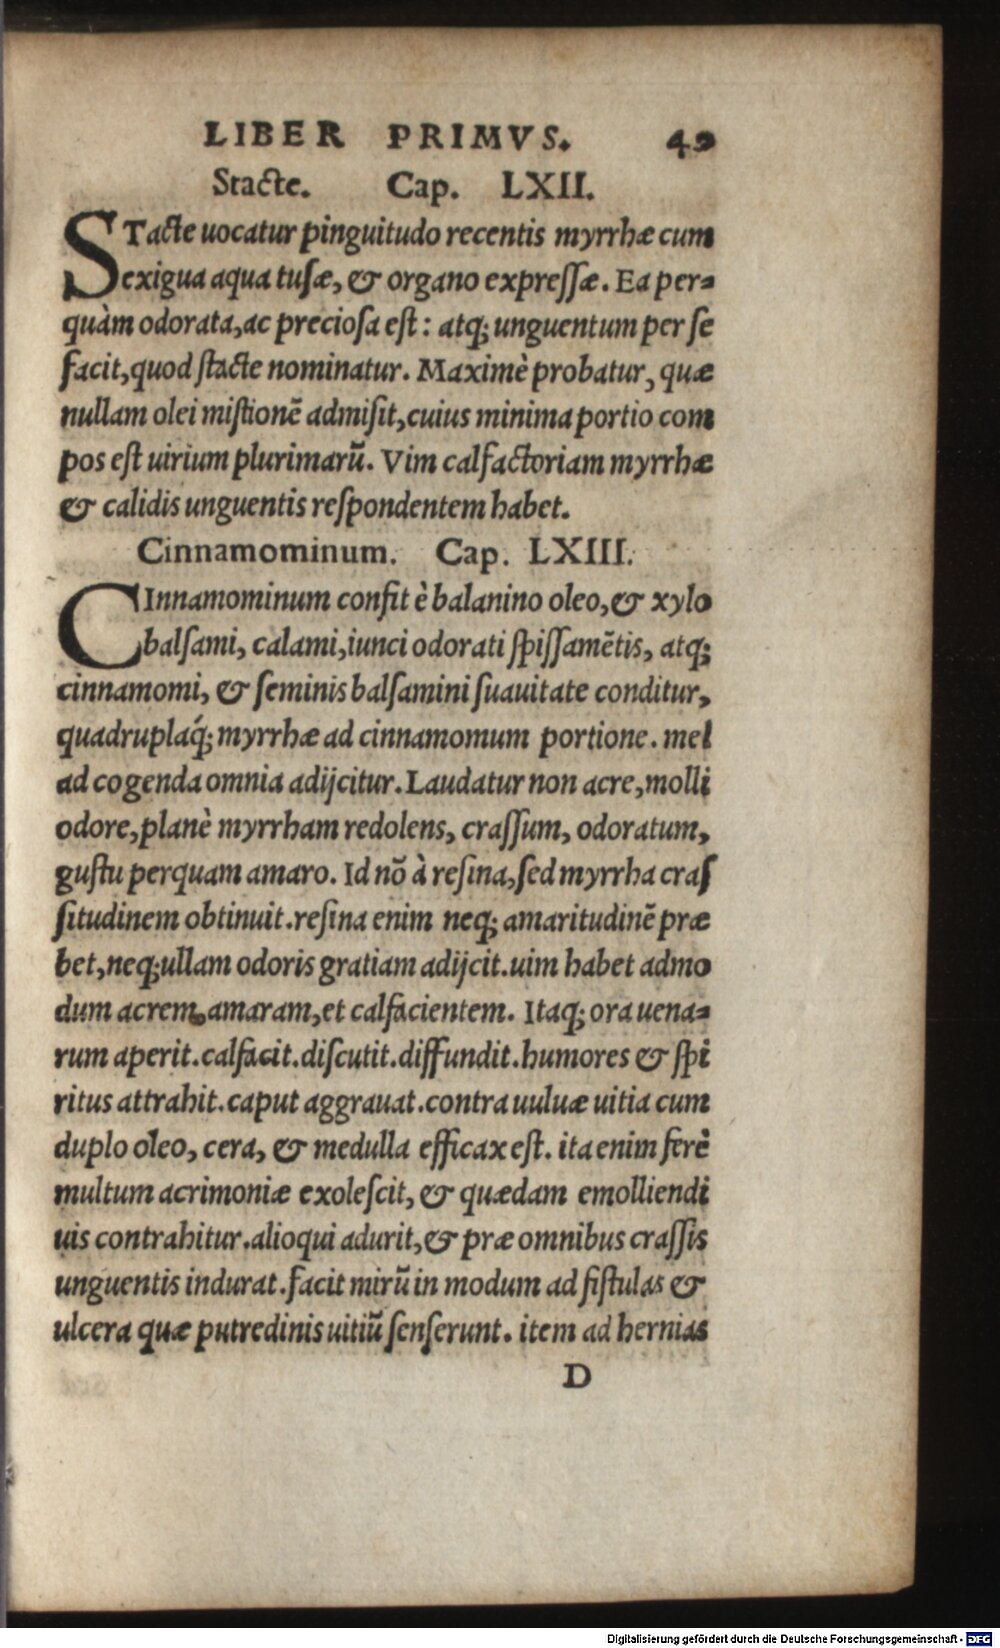 LIBER PRIMVS. 49
Stacte. Cap. LXII.
STacte uocatur pinguitudo recentis myrrhæ cum
exigua aqua tusæ, & organo expressæ. Ea per-
quàm odorata, ac preciosa est: atq; unguentum per se
facit, quod stacte nominatur. Maximè probatur, quæ
nullam olei mistionẽ admisit, cuius minima portio com
pos est uirium plurimarũ. Vim calfactoriam myrrhæ
& calidis unguentis respondentem habet.
Cinnamominum. Cap. LXIII.
CInnamominum confit è balanino oleo, & xylo
balsami, calami, iunci odorati spissamẽtis, atq;
cinnamomi, & seminis balsamini suauitate conditur,
quadrupláq; myrrhæ ad cinnamomum portione. mel
ad cogenda omnia adijcitur. Laudatur non acre, molli
odore, planè myrrham redolens, crassum, odoratum,
gustu perquam amaro. Id nõ à resina, sed myrrha cras
situdinem obtinuit. resina enim neq; amaritudinẽ præ
bet, neq; ullam odoris gratiam adijcit. uim habet admo
dum acrem, amaram, et calfacientem. Itaq; ora uena-
rum aperit. calfacit. discutit. diffundit. humores & spi
ritus attrahit. caput aggrauat. contra uuluæ uitia cum
duplo oleo, cera, & medulla efficax est. ita enim ferè
multum acrimoniæ exolescit, & quædam emolliendi
uis contrahitur. alioqui adurit, & præ omnibus crassis
unguentis indurat. facit mirũ in modum ad fistulas &
ulcera quæ putredinis uitiũ senserunt. item ad hernias
D
Digitalisierung gefördert durch die Deutsche Forschungsgemeinschaft - DFG